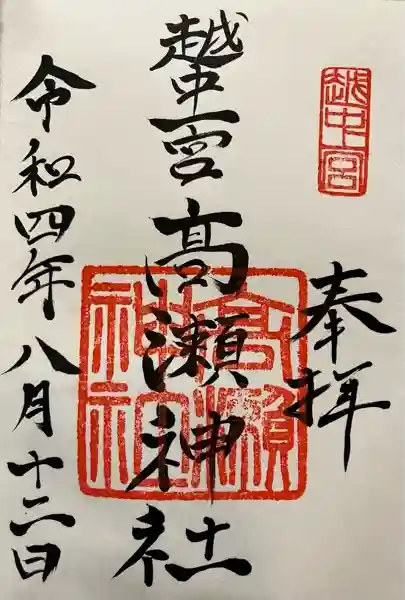 奉拝
越中宮
越中一宮 高瀬神社
高瀬神社
令和四年八月十二日